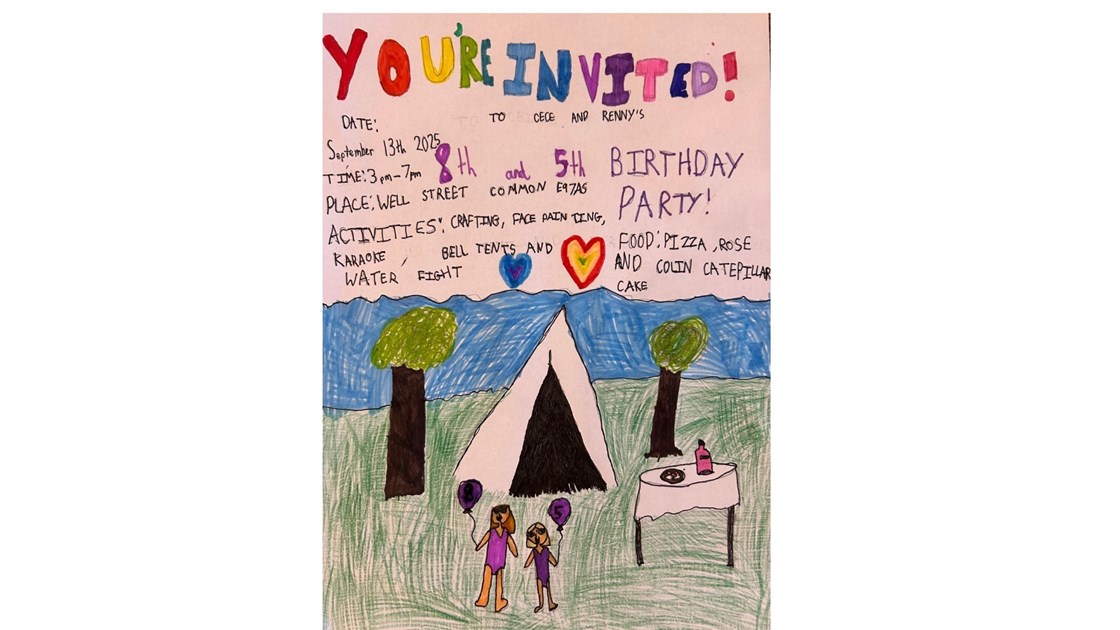 YOU'RE INVITED!
TO CECE AND RENNY'S
DATE:
September 13th 2025
8th and 5th BIRTHDAY PARTY!
TIME: 3pm-7pm
PLACE: WELL STREET COMMON E97AS
ACTIVITIES: CRAFTING, FACE PAINTING,
KARAOKE, BELL TENTS AND
WATER FIGHT
FOOD: PIZZA, ROSE
AND COLIN CATEPILLAR
CAKE
8
5